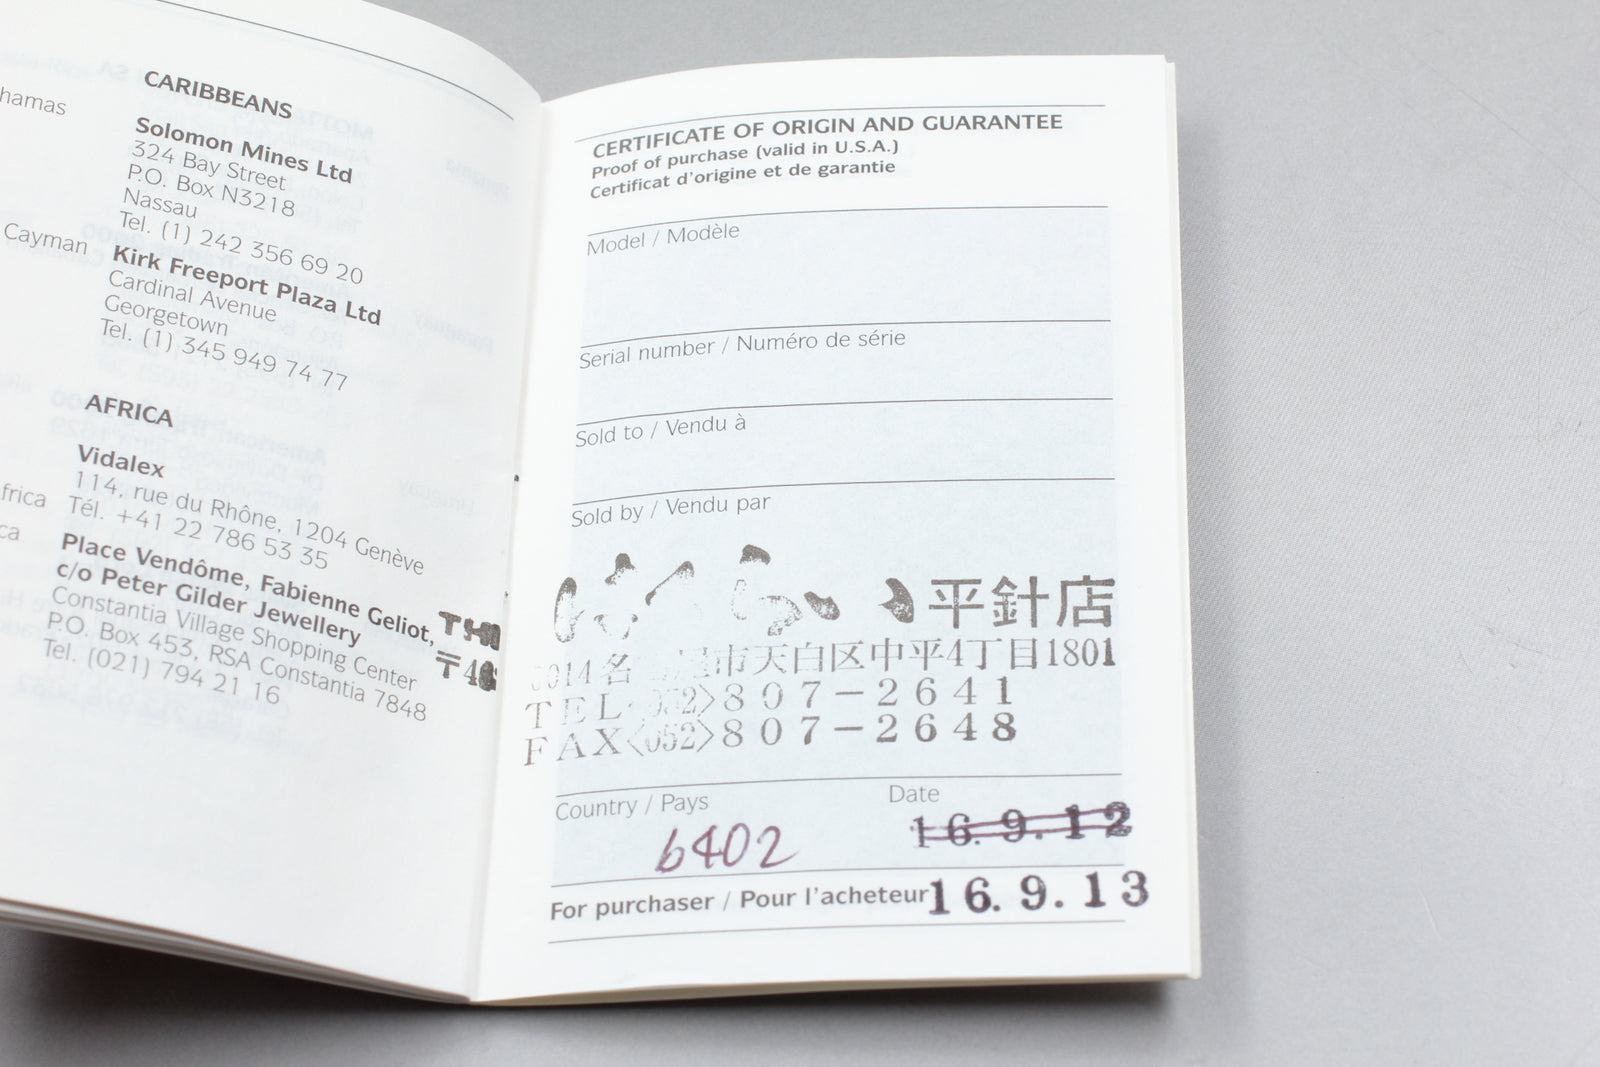 CARIBBEANS
hamas
Solomon Mines Ltd
324 Bay Street
P.O. Box N3218
Nassau
Tel. (1) 242 356 69 20
Cayman
Kirk Freeport Plaza Ltd
Cardinal Avenue
Georgetown
Tel. (1) 345 949 74 77
AFRICA
Vidalex
114, rue du Rhône, 1204 Genève
frica
Tél. +41 22 786 53 35
ca
Place Vendôme, Fabienne Geliot,
c/o Peter Gilder Jewellery
Constantia Village Shopping Center
P.O. Box 453, RSA Constantia 7848
Tel. (021) 794 21 16
CERTIFICATE OF ORIGIN AND GUARANTEE
Proof of purchase (valid in U.S.A.)
Certificat d'origine et de garantie
Model / Modèle
Serial number / Numéro de série
Sold to / Vendu à
Sold by / Vendu par
平針店
〒46
014 名 屋市天白区中平4丁目1801
TEL〈052〉807-2641
FAX〈052〉807-2648
Country / Pays
Date
6402
16.9.12
For purchaser / Pour l'acheteur
16.9.13